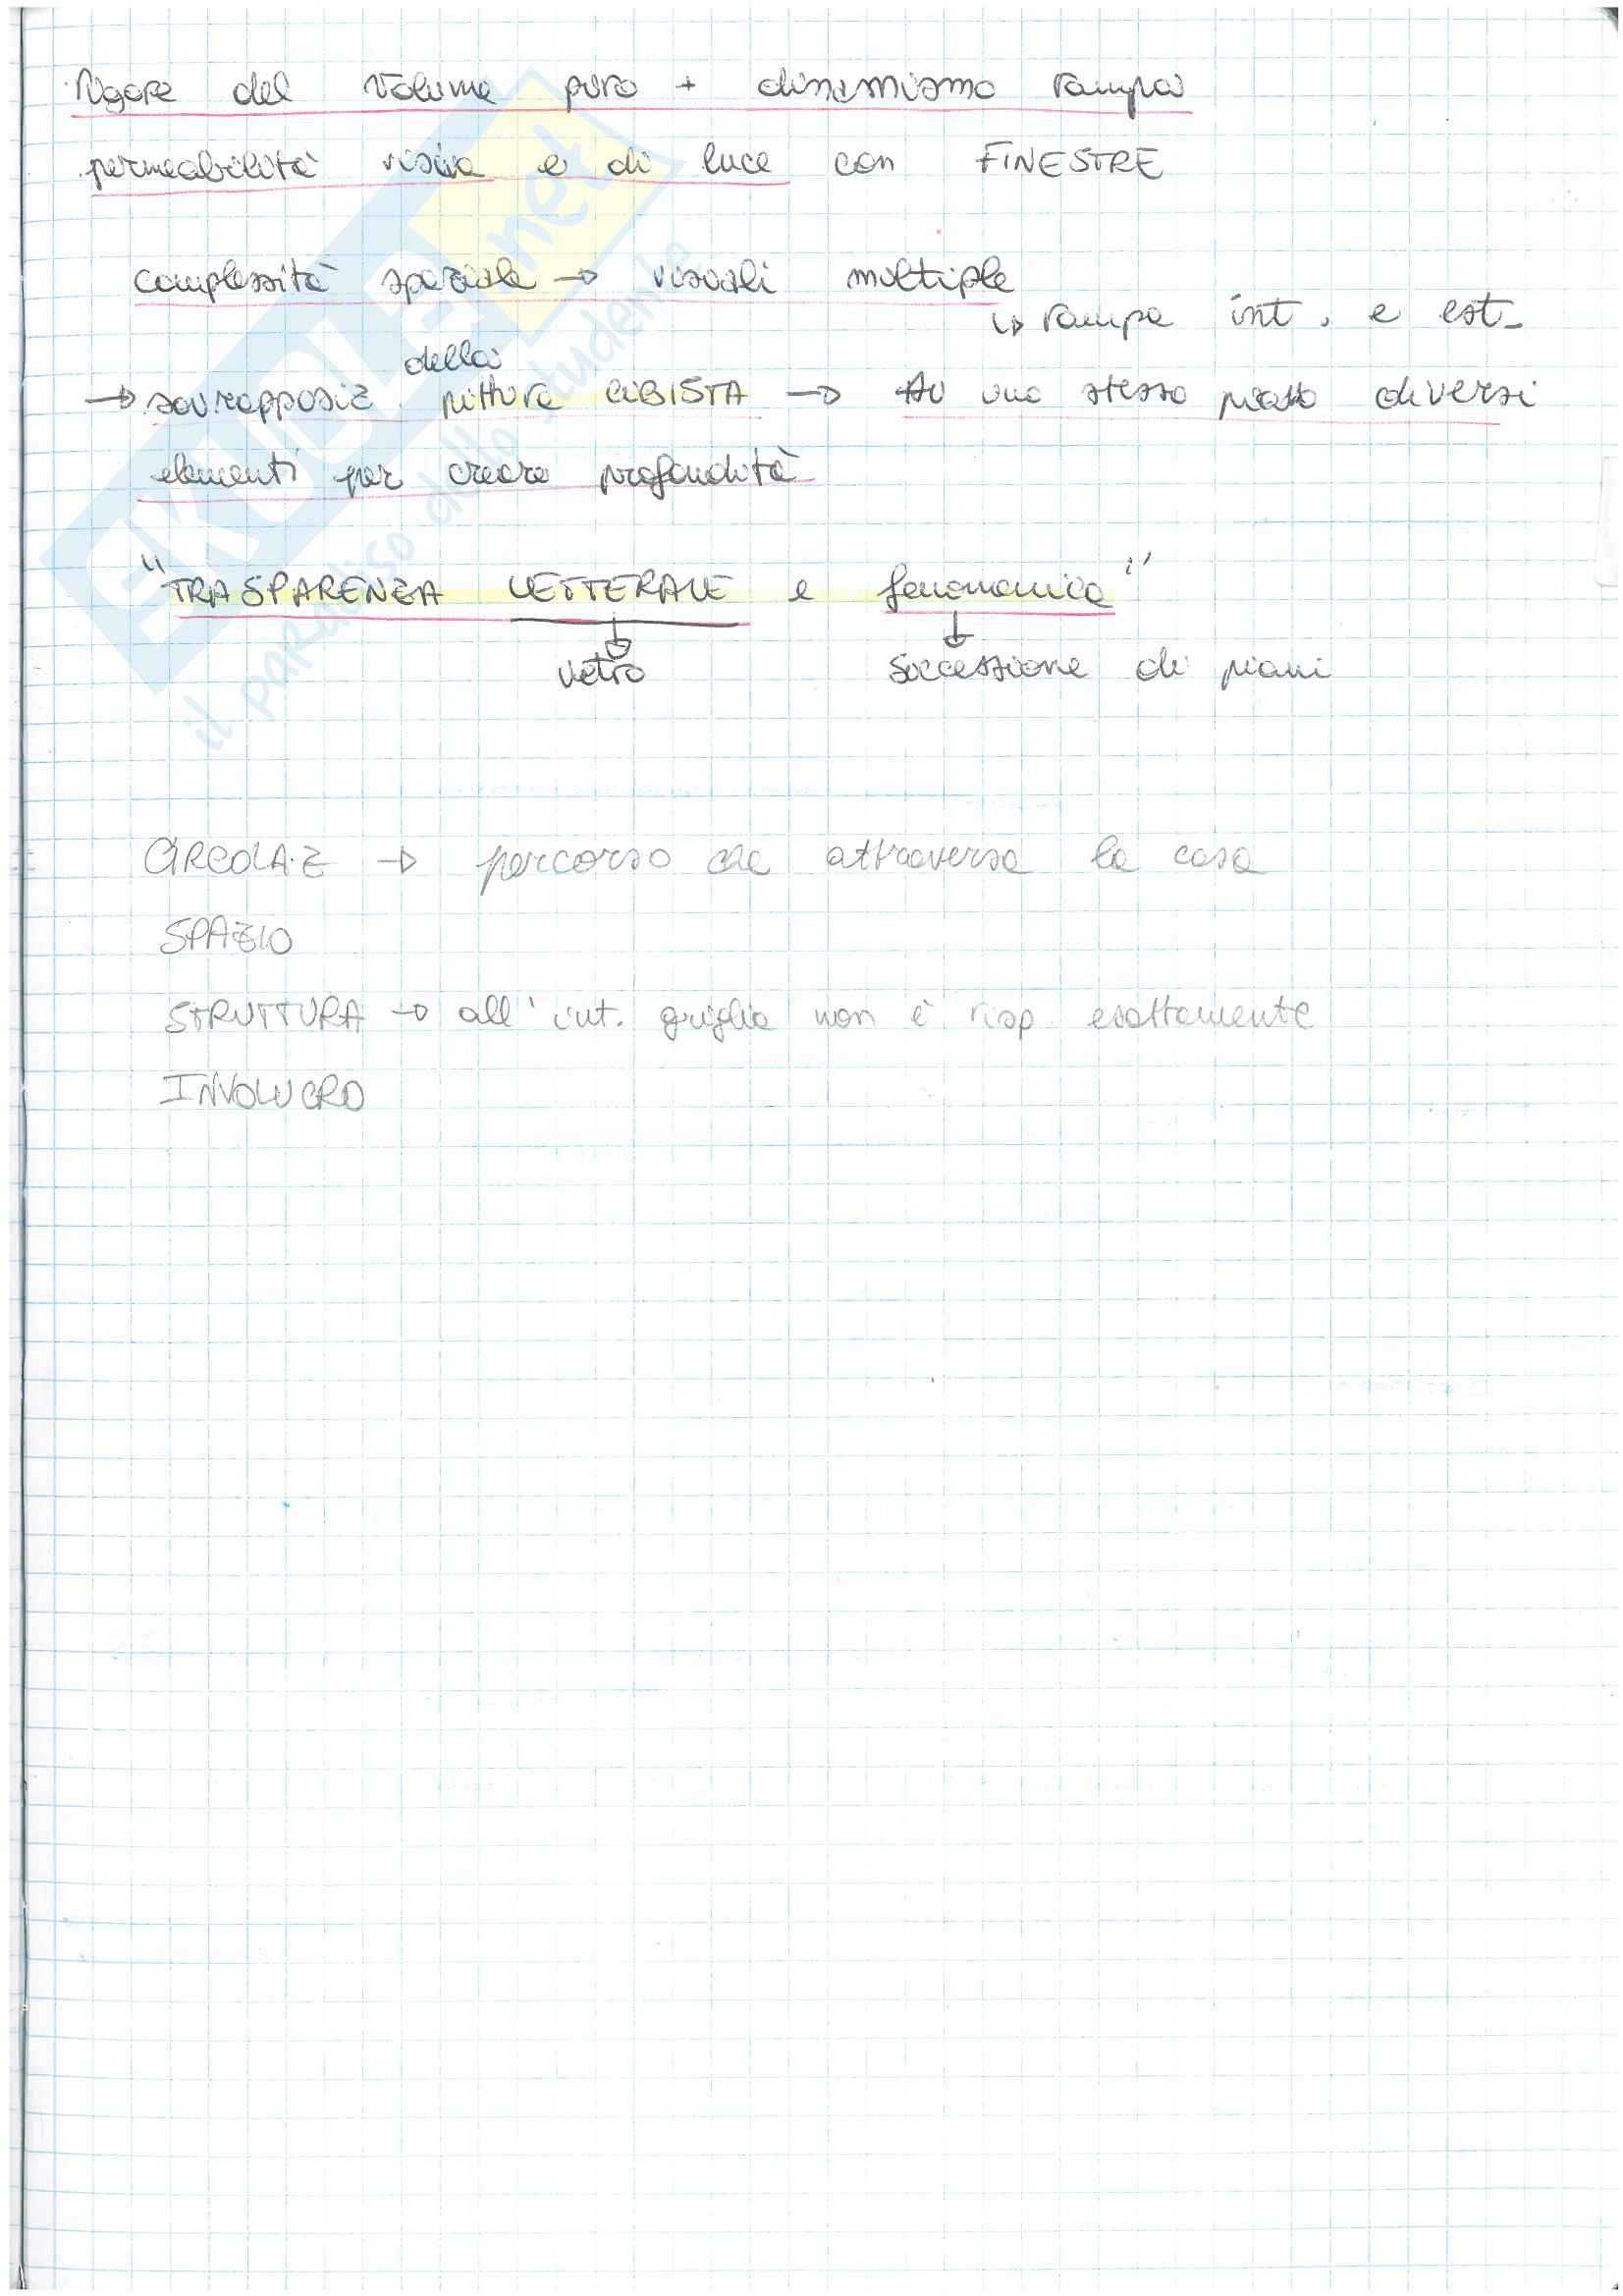 Rigore del volume puro + dinamismo rampa
permeabilità visiva e di luce con FINESTRE
complessità spaziale → visuali multiple
↳ rampa int. e est.
della
→ sovrapposiz. pittura CUBISTA → su uno stesso piano diversi
elementi per creare profondità
"TRASPARENZA LETTERALE e fenomenica"
↓ ↓
vetro successione di piani
CIRCOLAZ → percorso che attraversa la casa
SPAZIO
STRUTTURA → all'int. griglia non è risp esattamente
INVOLUCRO
skuola.net
il paradiso dello studente